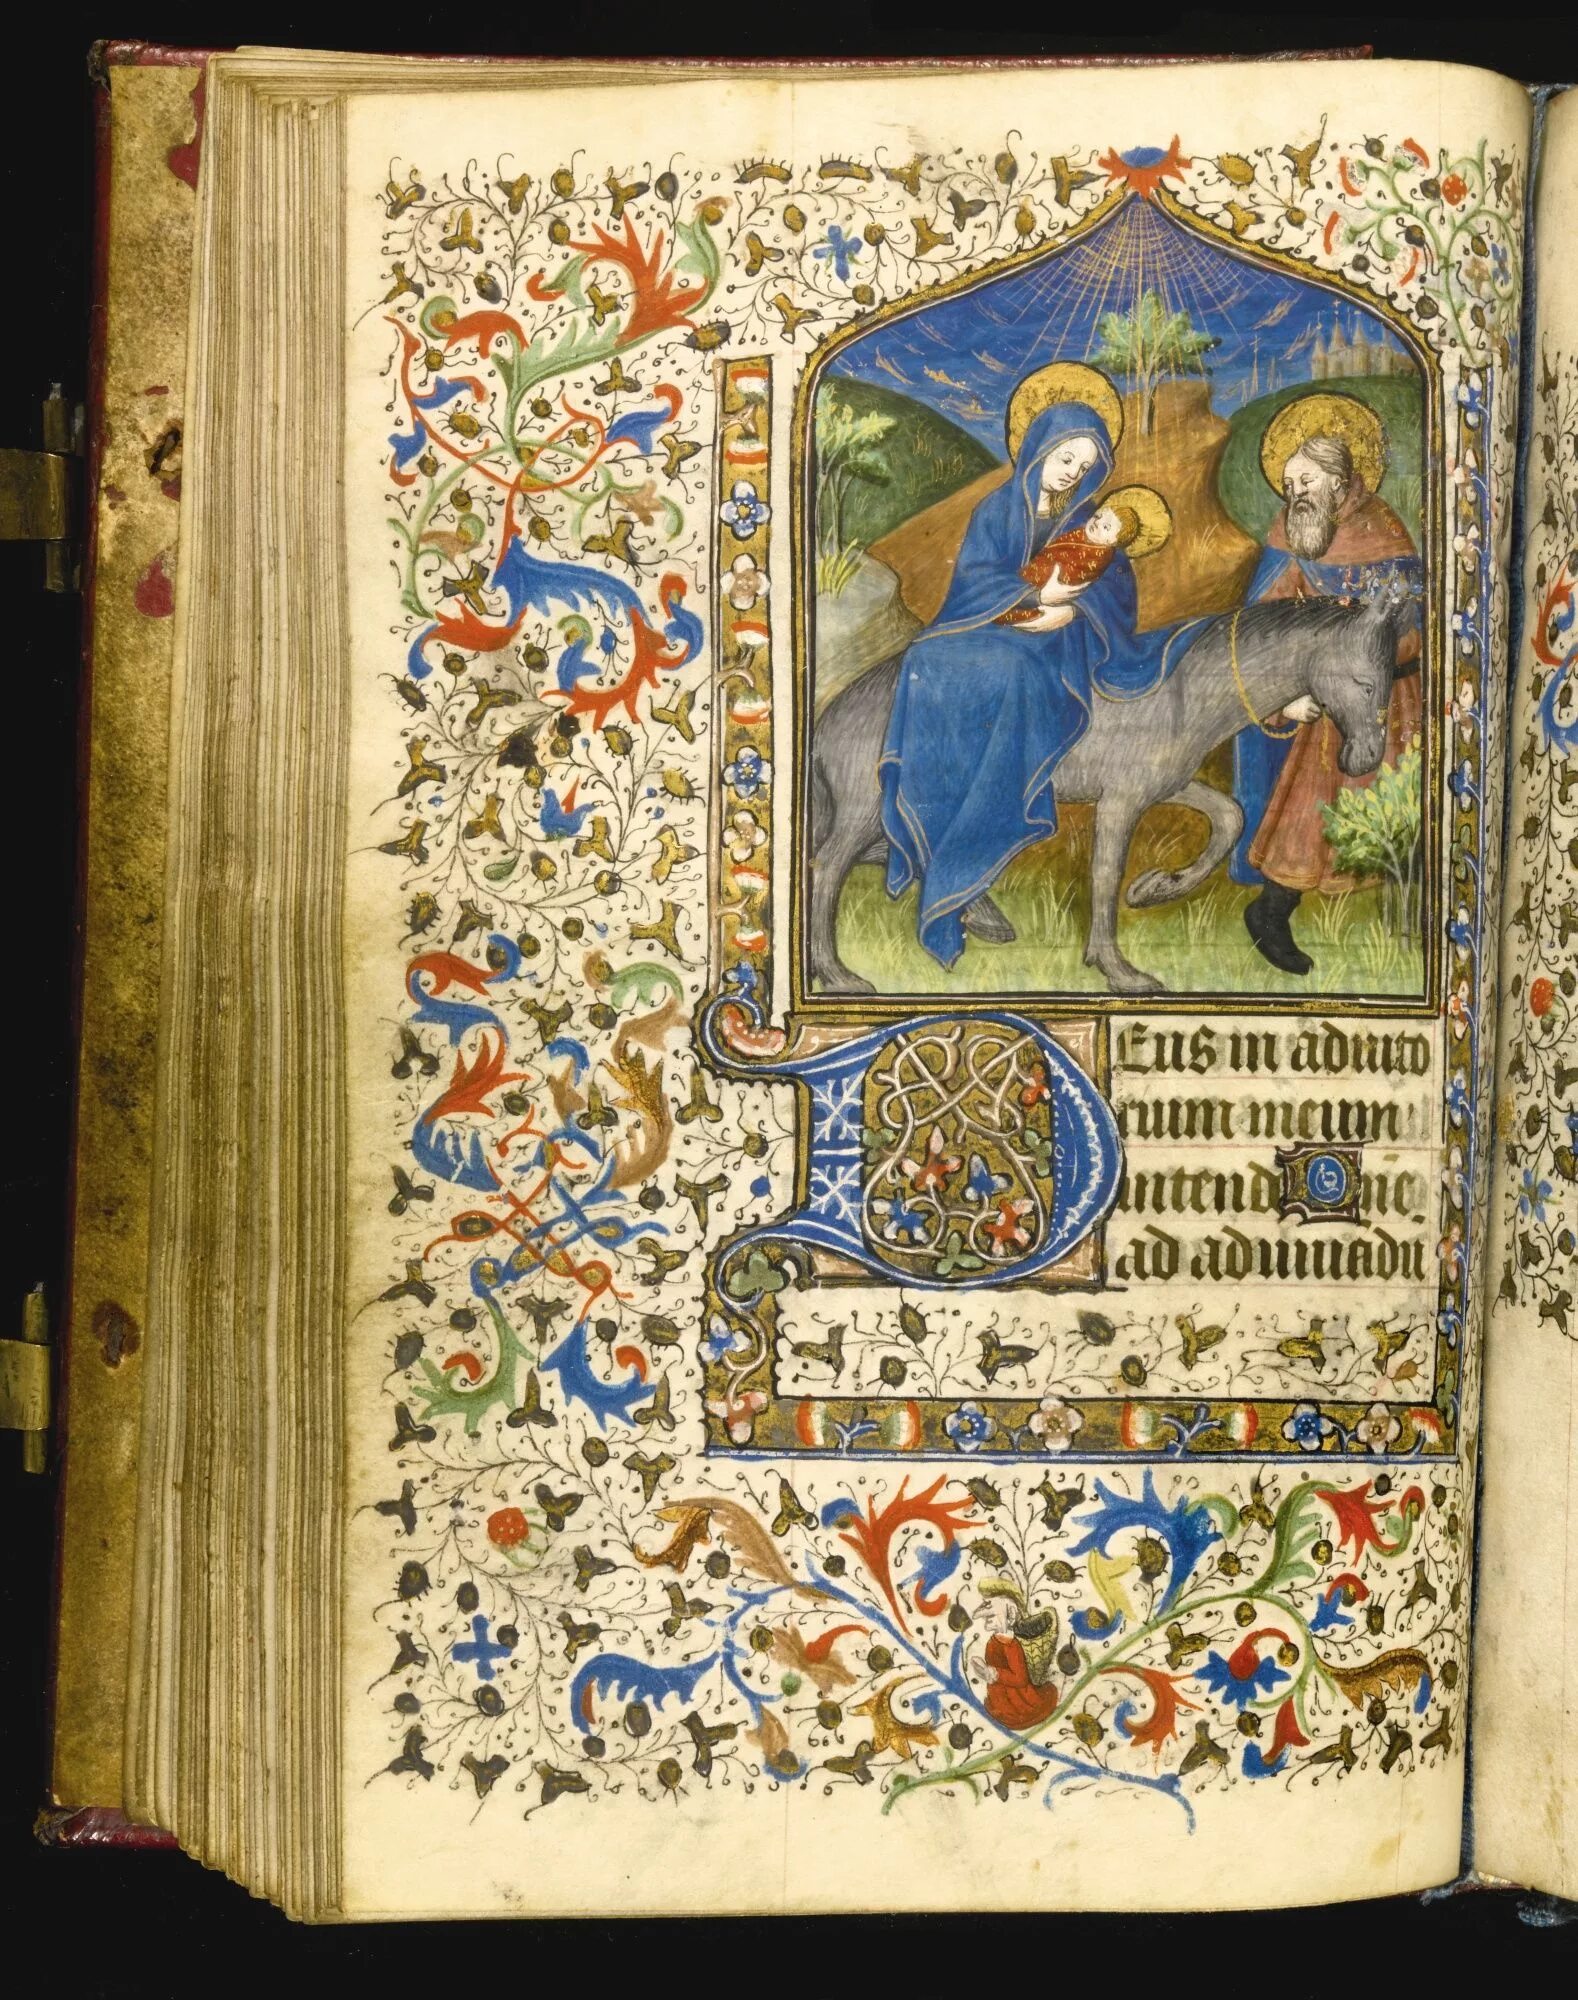 Deus in adiuto
rium meum
intende Dn̄e
ad adiuuādū